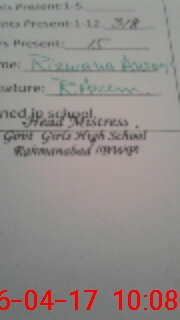 Present: 1-5
ents Present: 1-12 318
rs Present: 15
me: Rizwana
ature:
ned in school.
Head Mistress
Govt Girls High School
Rehmanabad
6-04-17 10:08